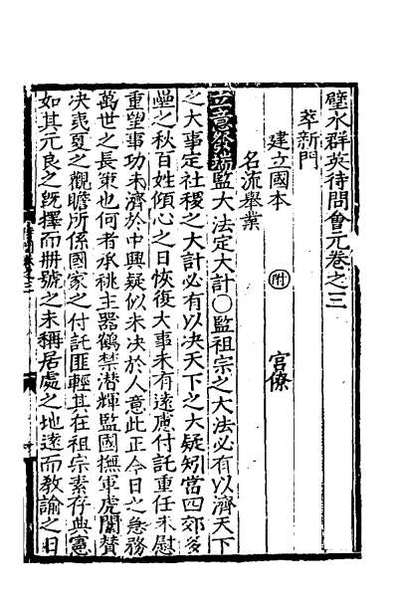 璧水群英待問會元卷之三
萃新門
建立國本 附 官僚
名流舉業
立意發端監大法定大計○監祖宗之大法必有以濟天下
之大事定社稷之大計必有以決天下之大疑矧當四郊多
壘之秋百姓傾心之日恢復大事未有遠慮付託重任未慰
重望事功未濟於中興疑似未決於人意此正今日之急務
萬世之長策也何者承祧主器鶴禁潛輝監國撫軍虎闈賛
決夷夏之觀瞻所係國家之付託匪輕其在祖宗素存典憲
如其元良之旣擇而冊號之未稱居處之地邃而敎諭之日